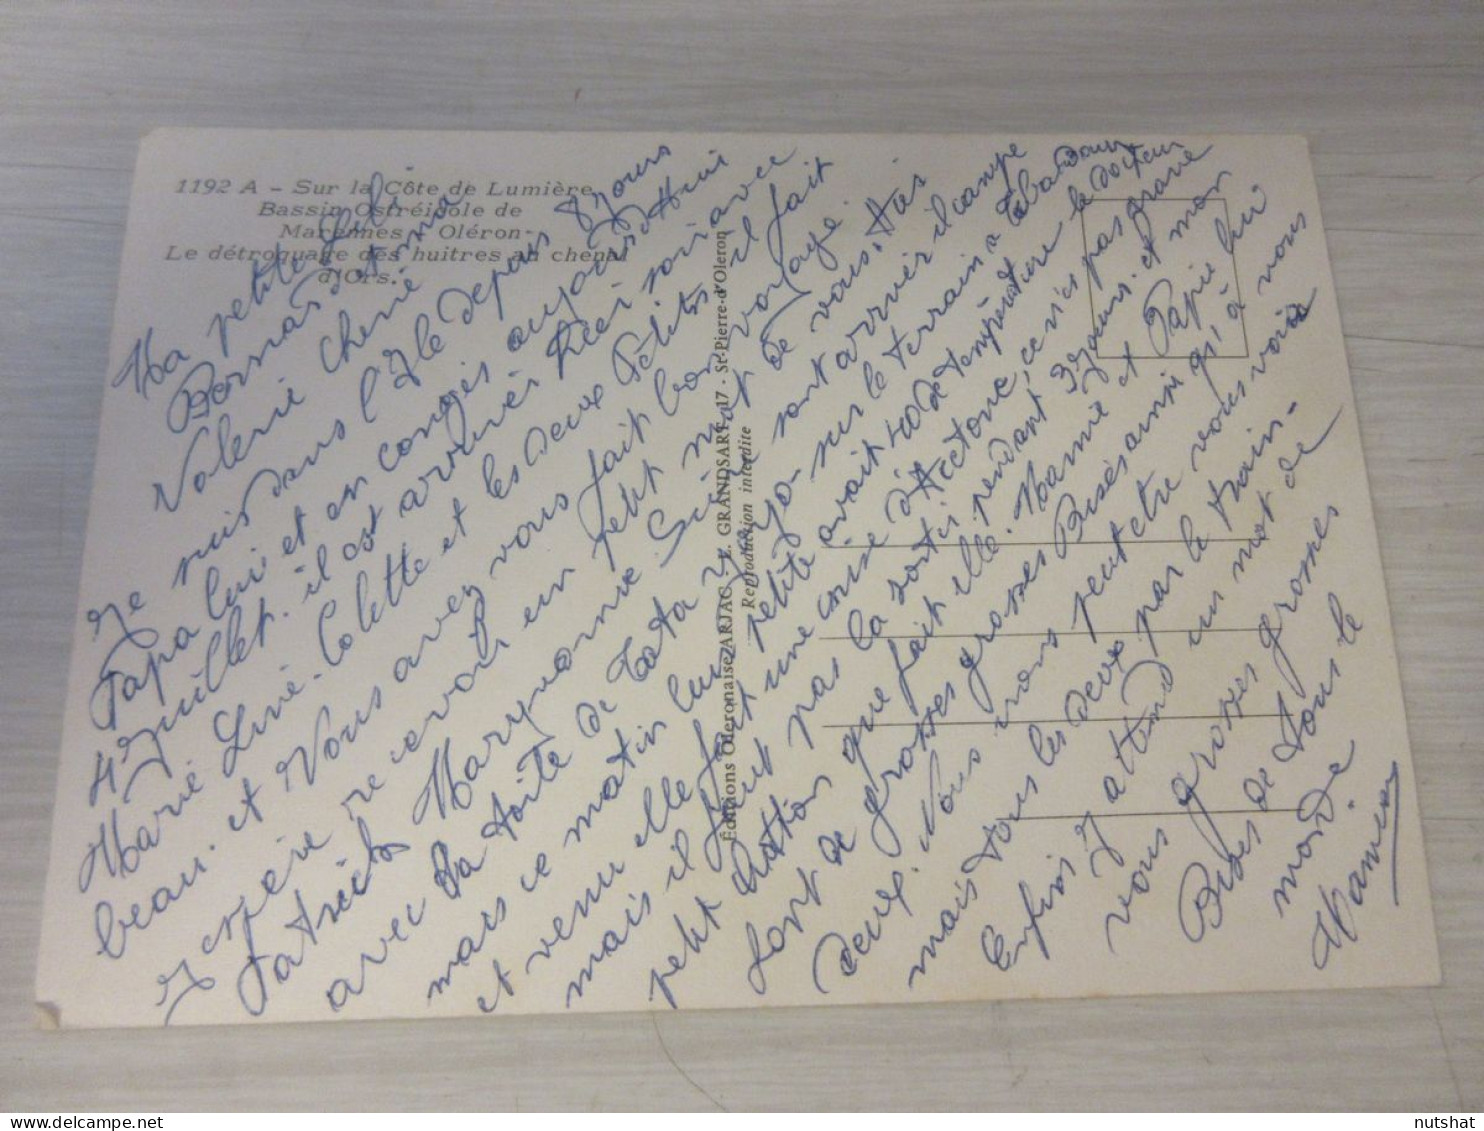 1192 A - Sur la Côte de Lumière
Bassin Ostréicole de
Marennes - Oléron
Le détroquage des huitres au chenal
d'Ors.
Éditions Oleronaises ARJAC - E. GRANDSART, 17 - St-Pierre-d'Oleron
Reproduction interdite
Ma petite
Bernard et ma
Valerie cherie
Je suis dans l'Ile depuis 8 jours
Papa lui et en congés aujourd'hui
4 Juillet. il est arrivé hier soir avec
Marie Line. Colette et les deux Petits il fait
beau. et Vous avez vous fait bon voyage.
J espère recevoir un petit mot de vous.
Patrick Maryvonne sont arrivér il campe
avec la toile de Tata yoyo. sur le terrain a
mais ce matin leur petite avait 40 de température le docteur
et venu elle fait une crise d'Acetone, ce n'es pas grave
mais il faut pas la sortir pendant 3 jours. et mon
petit que fait elle. Mamie et Papie lui
font de grosses grosses Bises ainsi qu'à vous
deux. Nous irons peut etre vous voir
mais tous les deux par le train -
Enfin j attend un mot de
vous grosses grosses
Bises de tous le
monde
Mamie
www.delcampe.net
nutshat